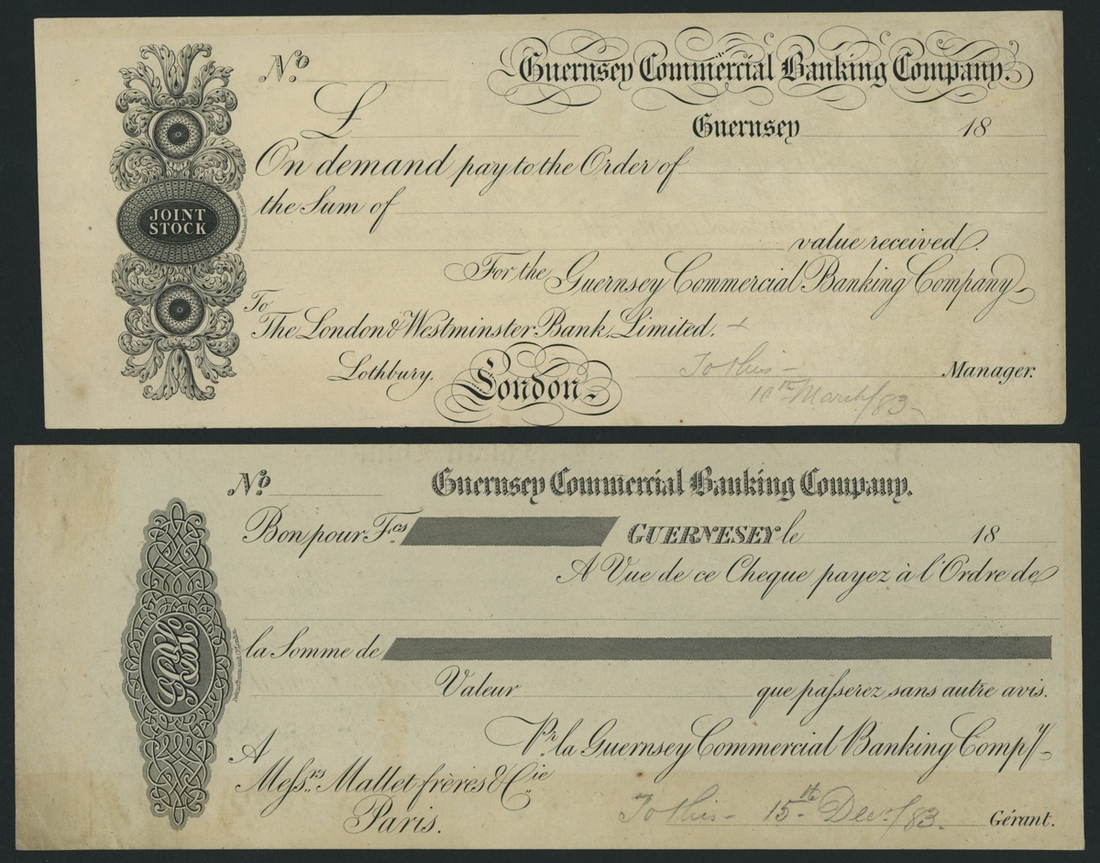 No.
Guernsey Commercial Banking Company.
£
Guernsey 18
On demand pay to the Order of
JOINT
STOCK
the Sum of
value received.
For the Guernsey Commercial Banking Company
To
The London & Westminster Bank, Limited.
Lothbury. London.
To this - Manager.
10th March/83
No.
Guernsey Commercial Banking Company.
Bon pour Fcs. GUERNESEY le 18
A Vue de ce Cheque payez à l'Ordre de
la Somme de
Valeur que passerez sans autre avis.
Pr. la Guernsey Commercial Banking Compy.
A
Messrs. Mallet frères & Cie.
Paris.
To this - 15th Decr/83. Gérant.